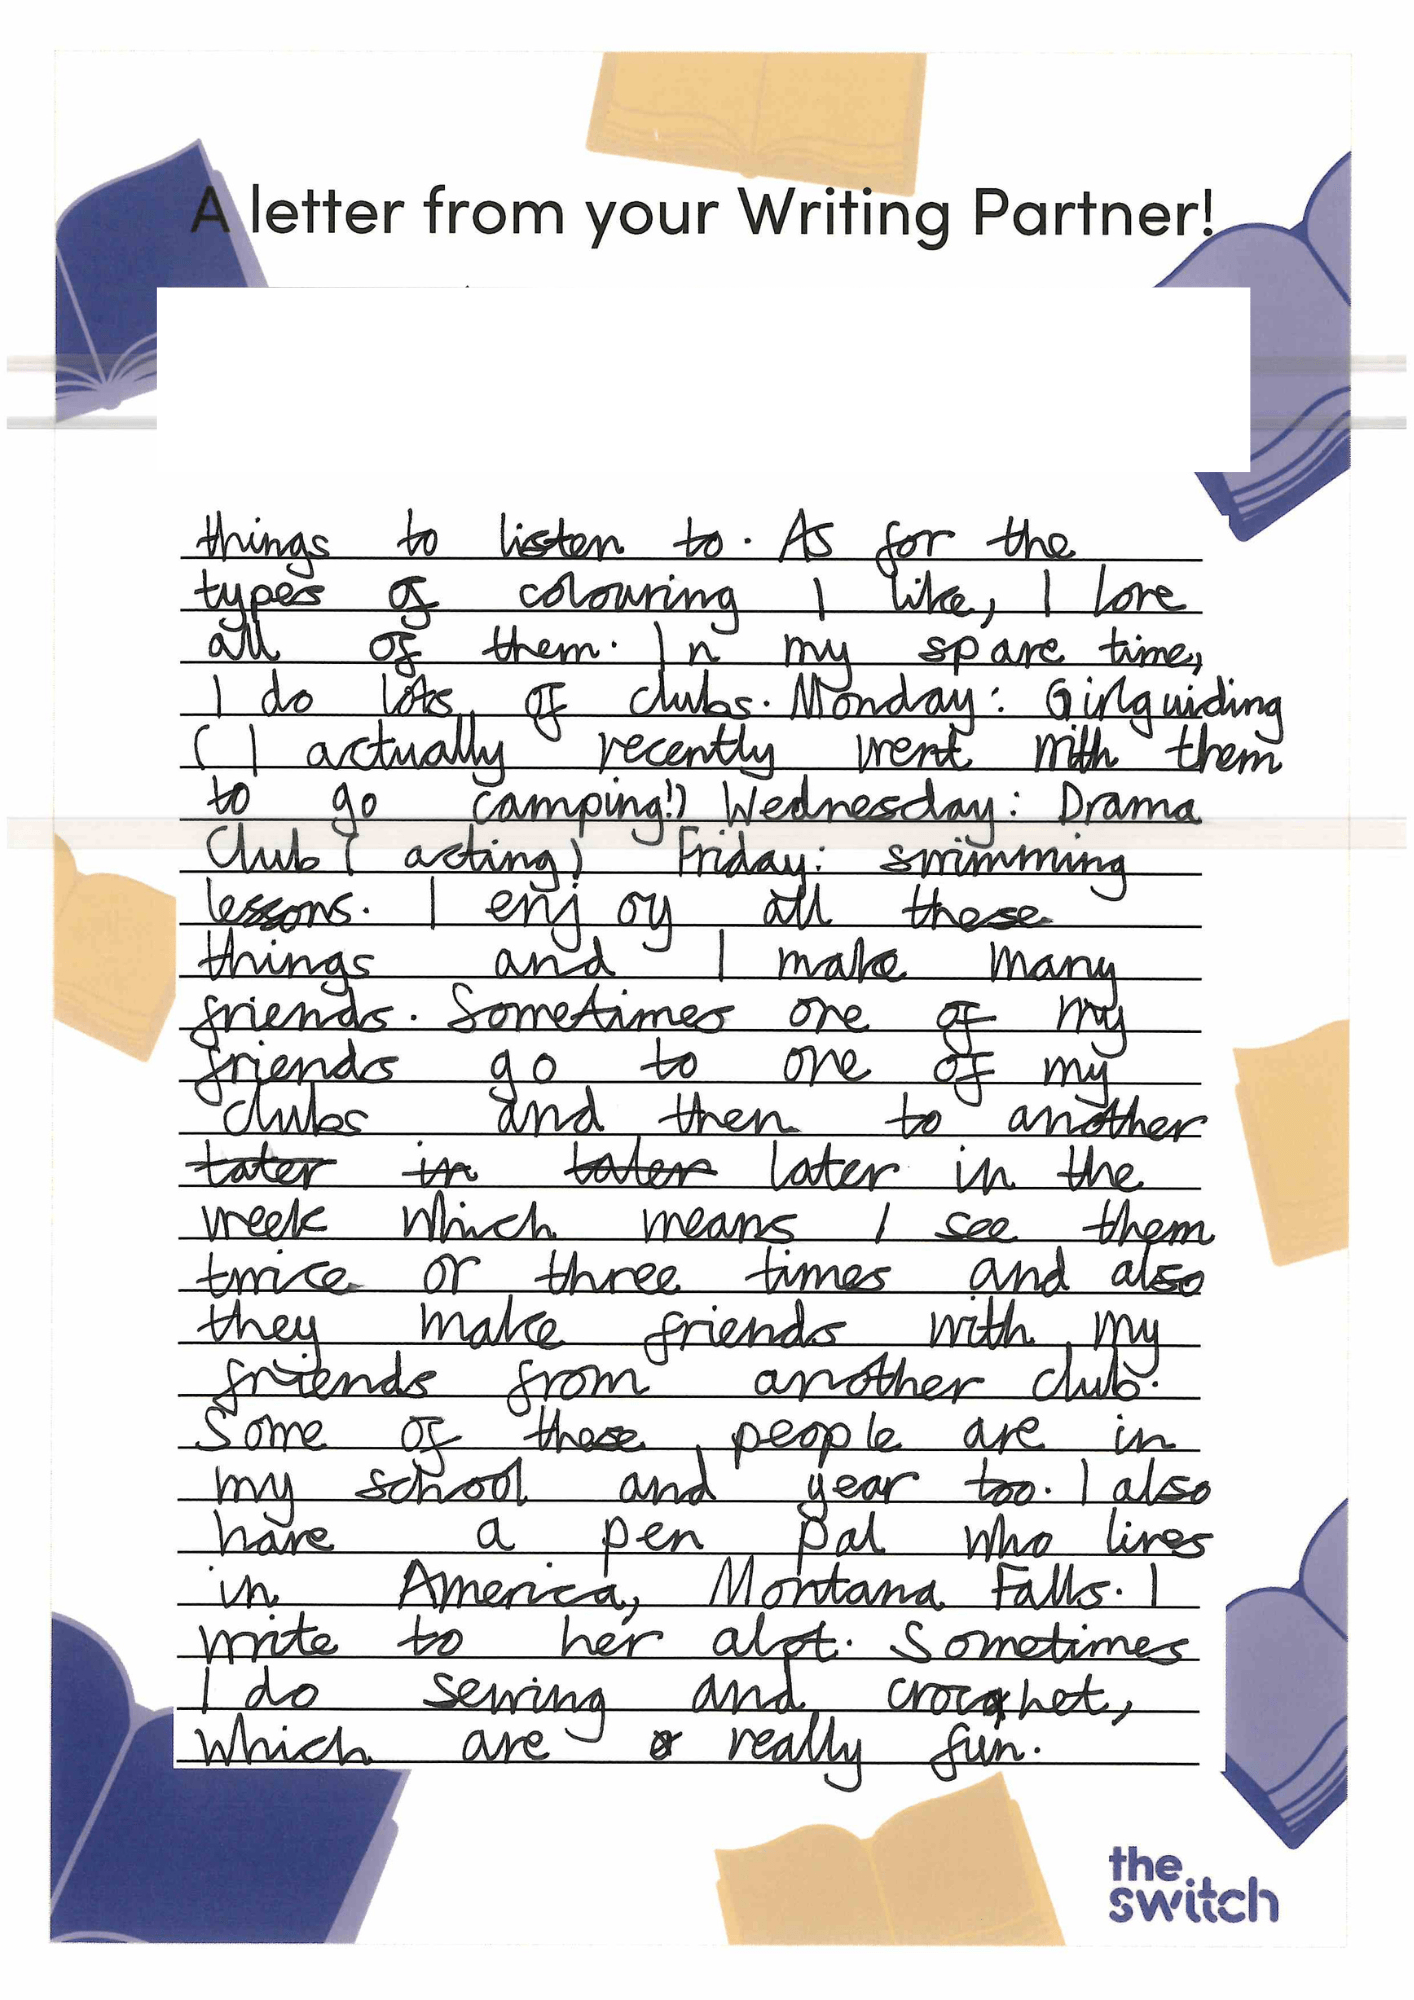 A letter from your Writing Partner!
things to listen to. As for the
types of colouring I like, I love
all of them. In my spare time,
I do lots of clubs. Monday: Girlguiding
( I actually recently went with them
to go camping!) Wednesday: Drama
Club ( acting) Friday: swimming
lessons. I enjoy all these
things and I make many
friends. Sometimes one of my
friends go to one of my
clubs and then to another
later in later later in the
week which means I see them
twice or three times and also
they make friends with my
friends from another club.
Some of these people are in
my school and year too. I also
have a pen pal who lives
in America, Montana Falls. I
write to her alot. Sometimes
I do sewing and crochet,
which are really fun.
the
switch